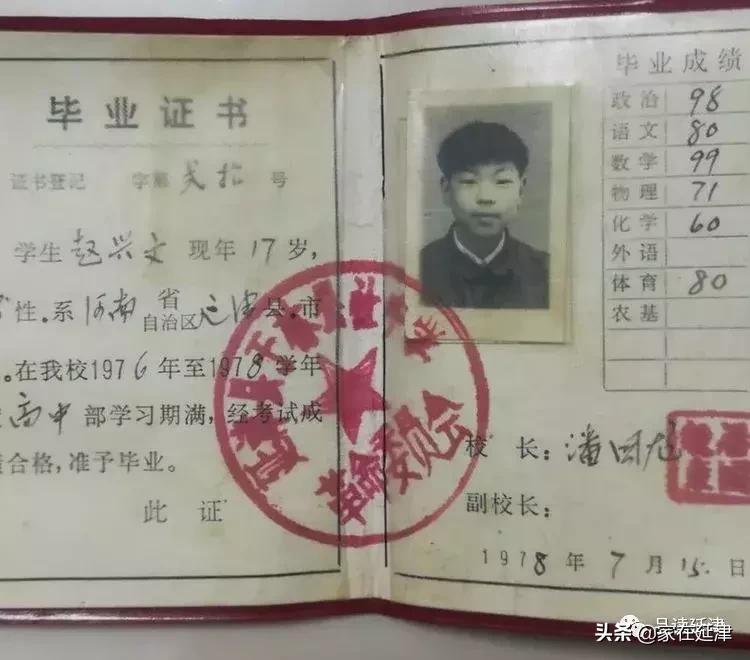 毕业证书
证书登记 字第 号
学生赵兴文现年17岁,
性。系河南省自治区延津县、市
。在我校1976年至1978学年
高中部学习期满,经考试成
合格,准予毕业。
此证
毕业成绩
政治 98
语文 80
数学 99
物理 71
化学 60
外语
体育 80
农基
校长:潘
副校长:
1978年7月15日
革命委员会
头条 @家在延津
品读延津